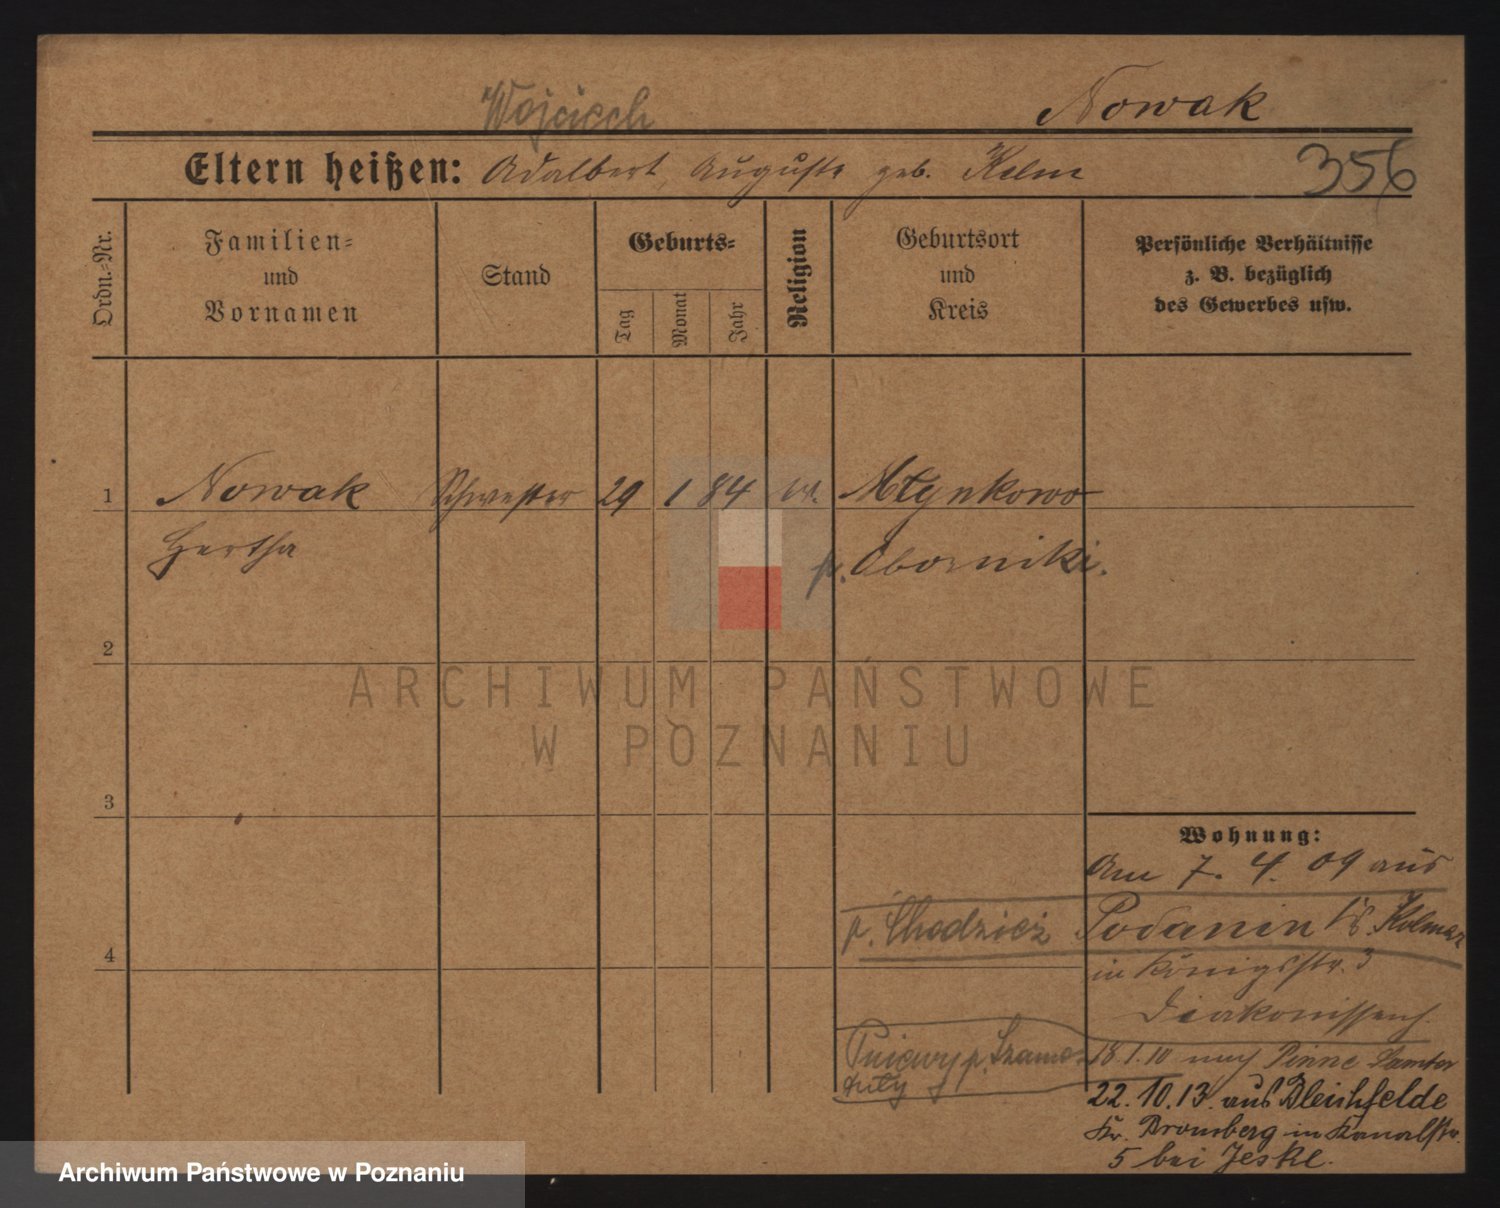 Wojciech
Nowak
Eltern heißen: Adalbert, Auguste geb. Kelm
356
Ordn.-Nr.
Familien-
und
Vornamen
Stand
Geburts-
Tag
Monat
Jahr
Religion
Geburtsort
und
Kreis
Persönliche Verhältnisse
z. B. bezüglich
des Gewerbes usw.
1 Nowak Schwester 29 1 84 ev. Młynkowo
Hertha p. Oborniki.
2
ARCHIWUM PAŃSTWOWE
W POZNANIU
3
Wohnung:
Am 7. 4. 09 aus
p. Chodzież Podanin Kr. Kolmar
4
in Königsstr. 3
Diakonissenh.
Pniewy p. Szamo- 18.1.10 nach Pinne Samter
tuły
22.10.13. aus Bleichfelde
Kr. Bromberg in Kanalstr.
5 bei Jeske.
Archiwum Państwowe w Poznaniu